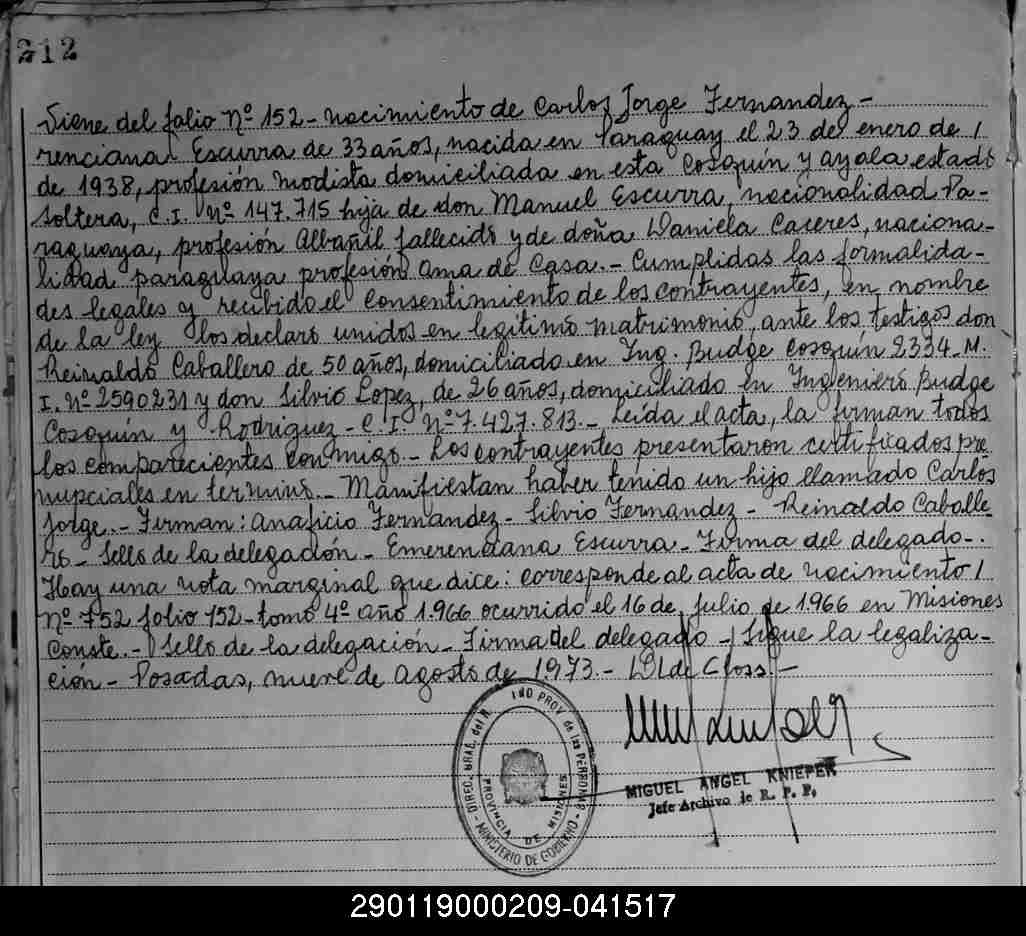 212
Viene del folio Nº 152 - nacimiento de Carlos Jorge Fernandez -
renciana Escurra de 33 años, nacida en Paraguay el 23 de enero de /
de 1938, profesión modista domiciliada en esta Cosquín y ayala estado
soltera, C.I. Nº 147.715 hija de don Manuel Escurra, nacionalidad Pa-
raguaya, profesión Albañil fallecido y de doña Daniela Caceres, naciona-
lidad paraguaya profesión ama de Casa.- Cumplidas las formalida-
des legales y recibido el Consentimiento de los contrayentes, en nombre
de la ley los declaro unidos en legítimo matrimonio, ante los testigos don
Reinaldo Caballero de 50 años, domiciliado en Ing. Budge Cosquín 2334 - M.
I. Nº 2590231 y don Silvio Lopez, de 26 años, domiciliado en Ingeniero Budge
Cosquín y Rodriguez - C.I. Nº 7.427.813.- Leída el acta, la firman todos
los comparecientes conmigo.- Los contrayentes presentaron certificados pre
nupciales en termino.- Manifiestan haber tenido un hijo llamado Carlos
Jorge.- Firman: Anaficio Fernandez - Silvio Fernandez - Reinaldo Caballe-
ro - Sello de la delegación - Emerenciana Escurra - Firma del delegado -.
Hay una nota marginal que dice: corresponde al acta de nacimiento /
Nº 752 folio 152 - tomo 4º año 1.966 ocurrido el 16 de Julio de 1.966 en Misiones
Conste.- Sello de la delegación - Firma del delegado - Sigue la legaliza-
ción - Posadas, nueve de agosto de 1973.- de Closs -
DIREC. GRAL. del R. IND PROV. de las PERSONAS
PROVINCIA DE MISIONES
- MINISTERIO DE GOBIERNO -
MIGUEL ANGEL KNIEPER
Jefe Archivo de R. P. P.
290119000209-041517